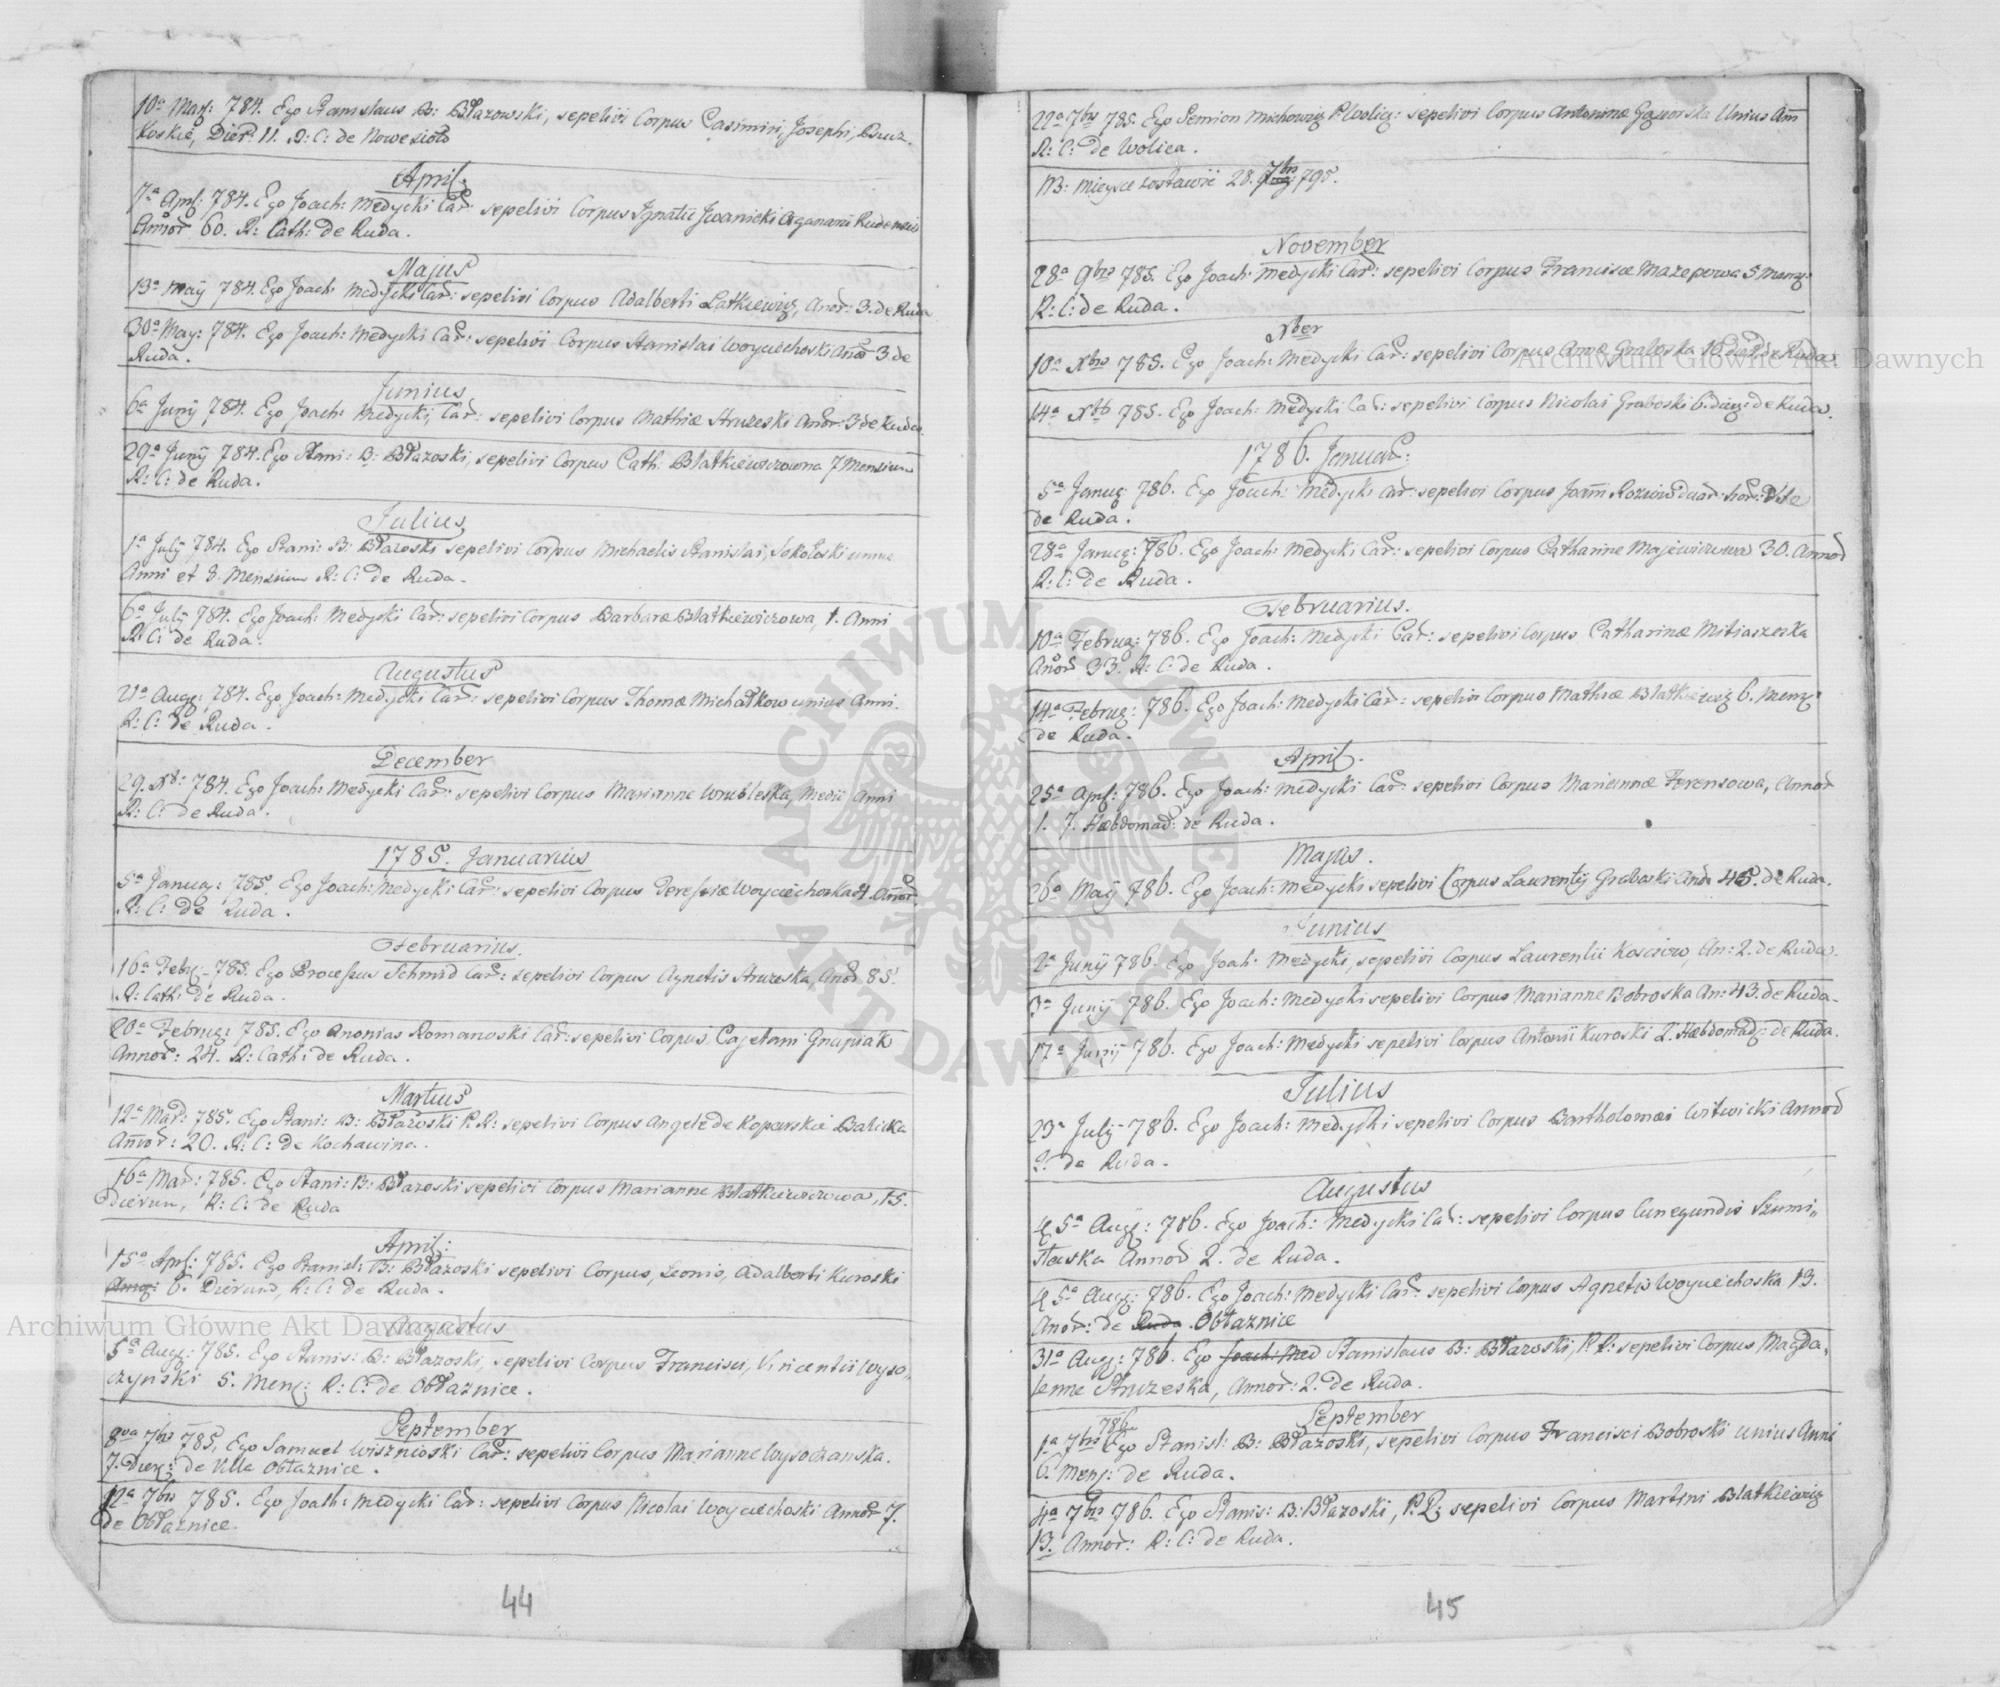 10ª Marţ: 784. Ego Stanislaus B: Błazowski, sepelivi Corpus Casimiri, Josephi,
Dier: 11. R: C: de Nowesioło
April:
7ª Apř: 784. Ego Joach: Medycki Car: sepelivi Corpus Ignatii Jwanicki Organarii Rudensis
Annor 60. R: Cath: de Ruda.
Majus
13ª Maÿ 784. Ego Joach: Medycki Car: sepelivi Corpus Adalberti Latkiewicz, Anor: 3. de Ruda
30ª May: 784. Ego Joach: Medycki Car: sepelivi Corpus Stanislai Woyciechoski Anor 3 de
Ruda.
Junius
6ª Junÿ 784. Ego Joach: Medycki, Car: sepelivi Corpus Mathiæ Struzeski Anor: 3 de Ruda.
29ª Junÿ 784. Ego Stani: B: Błazoski, sepelivi Corpus Cath: Blatkiewiczowna 7 Mensium
R: C: de Ruda.
Julius
1ª Julÿ 784. Ego Stani: B: Błazoski sepelivi Corpus Michaelis Stanislai, Sokołoski unius
Anni et 8. Mensium R: C: de Ruda.
6ª Julÿ 784. Ego Joach: Medycki Car: sepelivi Corpus Barbaræ Blatkiewiczowa, 1. Anni
R: C: de Ruda.
Augustus
21ª Augg: 784. Ego Joach: Medycki Car: sepelivi Corpus Thomæ Michałkow unius Anni.
R: C: de Ruda.
December
29. Xb: 784. Ego Joach: Medycki Car: sepelivi Corpus Marianne Wrubleska, Medii Anni
R: C: de Ruda.
1785. Januarius
5ª Januar: 785. Ego Joach: Medycki Car: sepelivi Corpus Teressiæ Woyciechoska 4. Annor
R: C: de Ruda.
Februarius.
16ª Febr: 785. Ego Processus Schmid Car: sepelivi Corpus Agnetis Struzeska, Anor 85
R: Cath: de Ruda.
20ª Februar: 785. Ego Ananias Romanoski Car: sepelivi Corpus, Cajetani Gnapiak
Annor: 24. R: Cath: de Ruda.
Martius
12ª Mar: 785. Ego Stani: B: Błazoski P. R: sepelivi Corpus Angelæ de Koparskie Balicka
Annor: 20. R: C: de Kochawina.
16ª Mar: 785. Ego Stani: B: Błazoski sepelivi Corpus Marianne Blatkiewiczowa, 15.
Dierum, R: C: de Ruda
April:
15ª Apr: 785. Ego Stanisl: B: Błazoski sepelivi Corpus, Leonis, Adalberti Kuroski
6. Dierum, R: C: de Ruda.
Augustus
5ª Augg: 785. Ego Stanis: B: Błazoski, sepelivi Corpus Francisci, Vincentii Wyso„
czyński 5. Menş: R: C: de Obłaznice.
September
8va 7bris 785, Ego Samuel Wisznioski Car: sepelivi Corpus Marianne Wysoczanska.
7. Dier: de Villa Obłaznice.
12ª 7bris 785. Ego Joach: Medycki Car: sepelivi Corpus Nicolai Woyciechoski Annor 7.
de Obłaznice.
44
22ª 7bris 785. Ego Semion Michowicz P. Wolic: sepelivi Corpus Antoninæ Unius Ann
R: C: de Wolica.
NB: Mieysce zostawić 28. 7bris 795.
November
28ª 9bris 785. Ego Joach: Medycki Car: sepelivi Corpus Franciscæ Mazepowa 5 Menş:
R: C: de Ruda.
Xber
10ª Xbris 785. Ego Joach: Medycki Car: sepelivi Corpus Annæ Graboska 10 dier de Ruda.
14ª Xb 785. Ego Joach: Medycki Car: sepelivi Corpus Nicolai Graboski 6. dier: de Ruda.
1786. Januar:
5ª Januar 786. Ego Joach: Medycki Car: sepelivi Corpus Joann
de Ruda.
28ª Januar: 786. Ego Joach: Medycki Car: sepelivi Corpus Catharine Majewiczowa 30. Annor
R: C: de Ruda.
Februarius.
10ª Februar: 786. Ego Joach: Medycki Car: sepelivi Corpus Catharinæ Mitiaszeska
Anor 33. R: C: de Ruda.
14ª Februar: 786. Ego Joach: Medycki Car: sepelivi Corpus Mathiæ Blatkiewicz 6. Menş:
de Ruda.
April.
25ª Apř: 786. Ego Joach: Medycki Car: sepelivi Corpus Mariannæ Ferensowa, Annor
1. 7. Hæbdomad: de Ruda.
Majus.
26ª Maÿ 786. Ego Joach: Medycki sepelivi Corpus Laurentÿ Graboski Anor 45. de Ruda.
Junius
2ª Junÿ 786. Ego Joach: Medycki, sepelivi Corpus Laurentii Kosciow, An: 2. de Ruda.
3ª Junÿ 786. Ego Joach: Medycki sepelivi Corpus Marianne Bobroska An: 43. de Ruda.
17ª Junÿ 786. Ego Joach: Medycki sepelivi Corpus Antonii Kuroski 2. Hæbdomad: de Ruda.
Julius
23ª Julÿ 786. Ego Joach: Medycki sepelivi Corpus Bartholomæi Witwicki Annor
2. de Ruda.
Augustus
5ª Augg: 786. Ego Joach: Medycki Car: sepelivi Corpus Cunegundis Szumi„
Annor 2. de Ruda.
5ª Augg: 786. Ego Joach: Medycki Car: sepelivi Corpus Agnetis Woyciechoska 13.
Anor: de Ruda. Obłaznice
31ª Aug: 786. Ego Joach: Med Stanislaus B: Błazoski, P. R: sepelivi Corpus Magda„
lenne Struzeska, Annor: 2. de Ruda.
September
1ª 7bris 786 Ego Stanisl: B: Błazoski, sepelivi Corpus Francisci Bobroski unius Anni
6 Menş: de Ruda.
4ª 7bris 786. Ego Stanis: B: Błazoski, P. R; sepelivi Corpus Martini Blatkiewicz
13. Annor: R: C: de Ruda.
45
Archiwum Główne Akt Dawnych
Archiwum Główne Akt Dawnych
ARCHIWUM GŁÓWNE AKT DAWNYCH